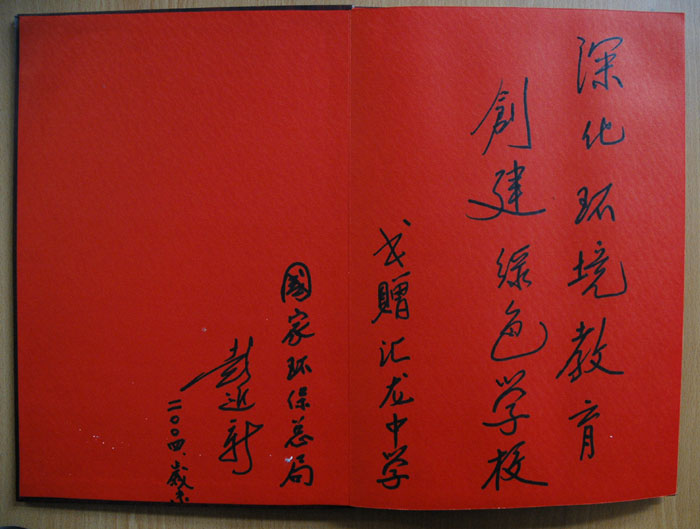 深化环境教育
創建绿色学校
书赠汇龙中学
國家环保总局
彭近新
二〇〇四、歲末